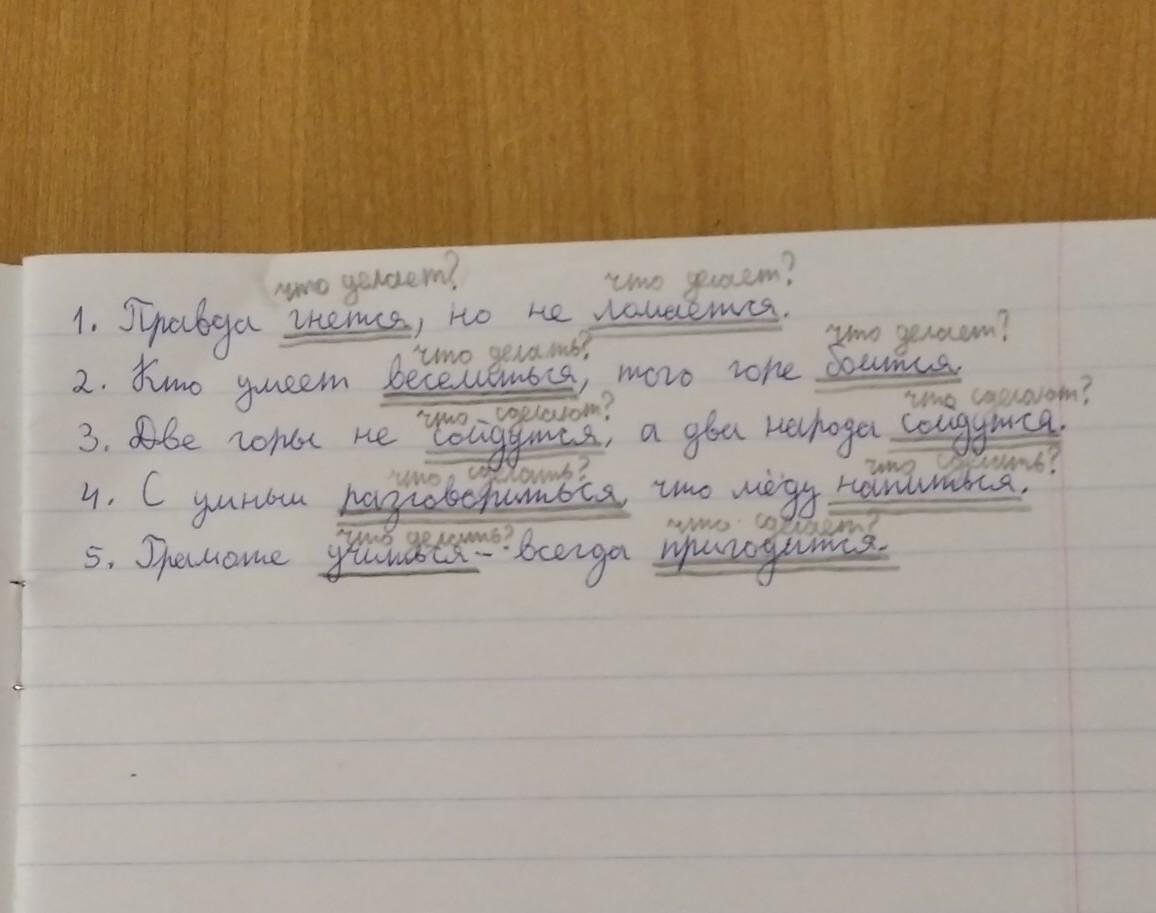 что делает? что делает?
1. Правда гнется, но не ломается.
что делать? что делает?
2. Кто умеет веселиться, того горе боится.
что сделают? что сделают?
3. Две горы не сойдутся, а два народа сойдутся.
что сделать? что сделать?
4. С умным разговориться, что мёду напиться.
что делать? что сделает?
5. Грамоте учиться - всегда пригодится.